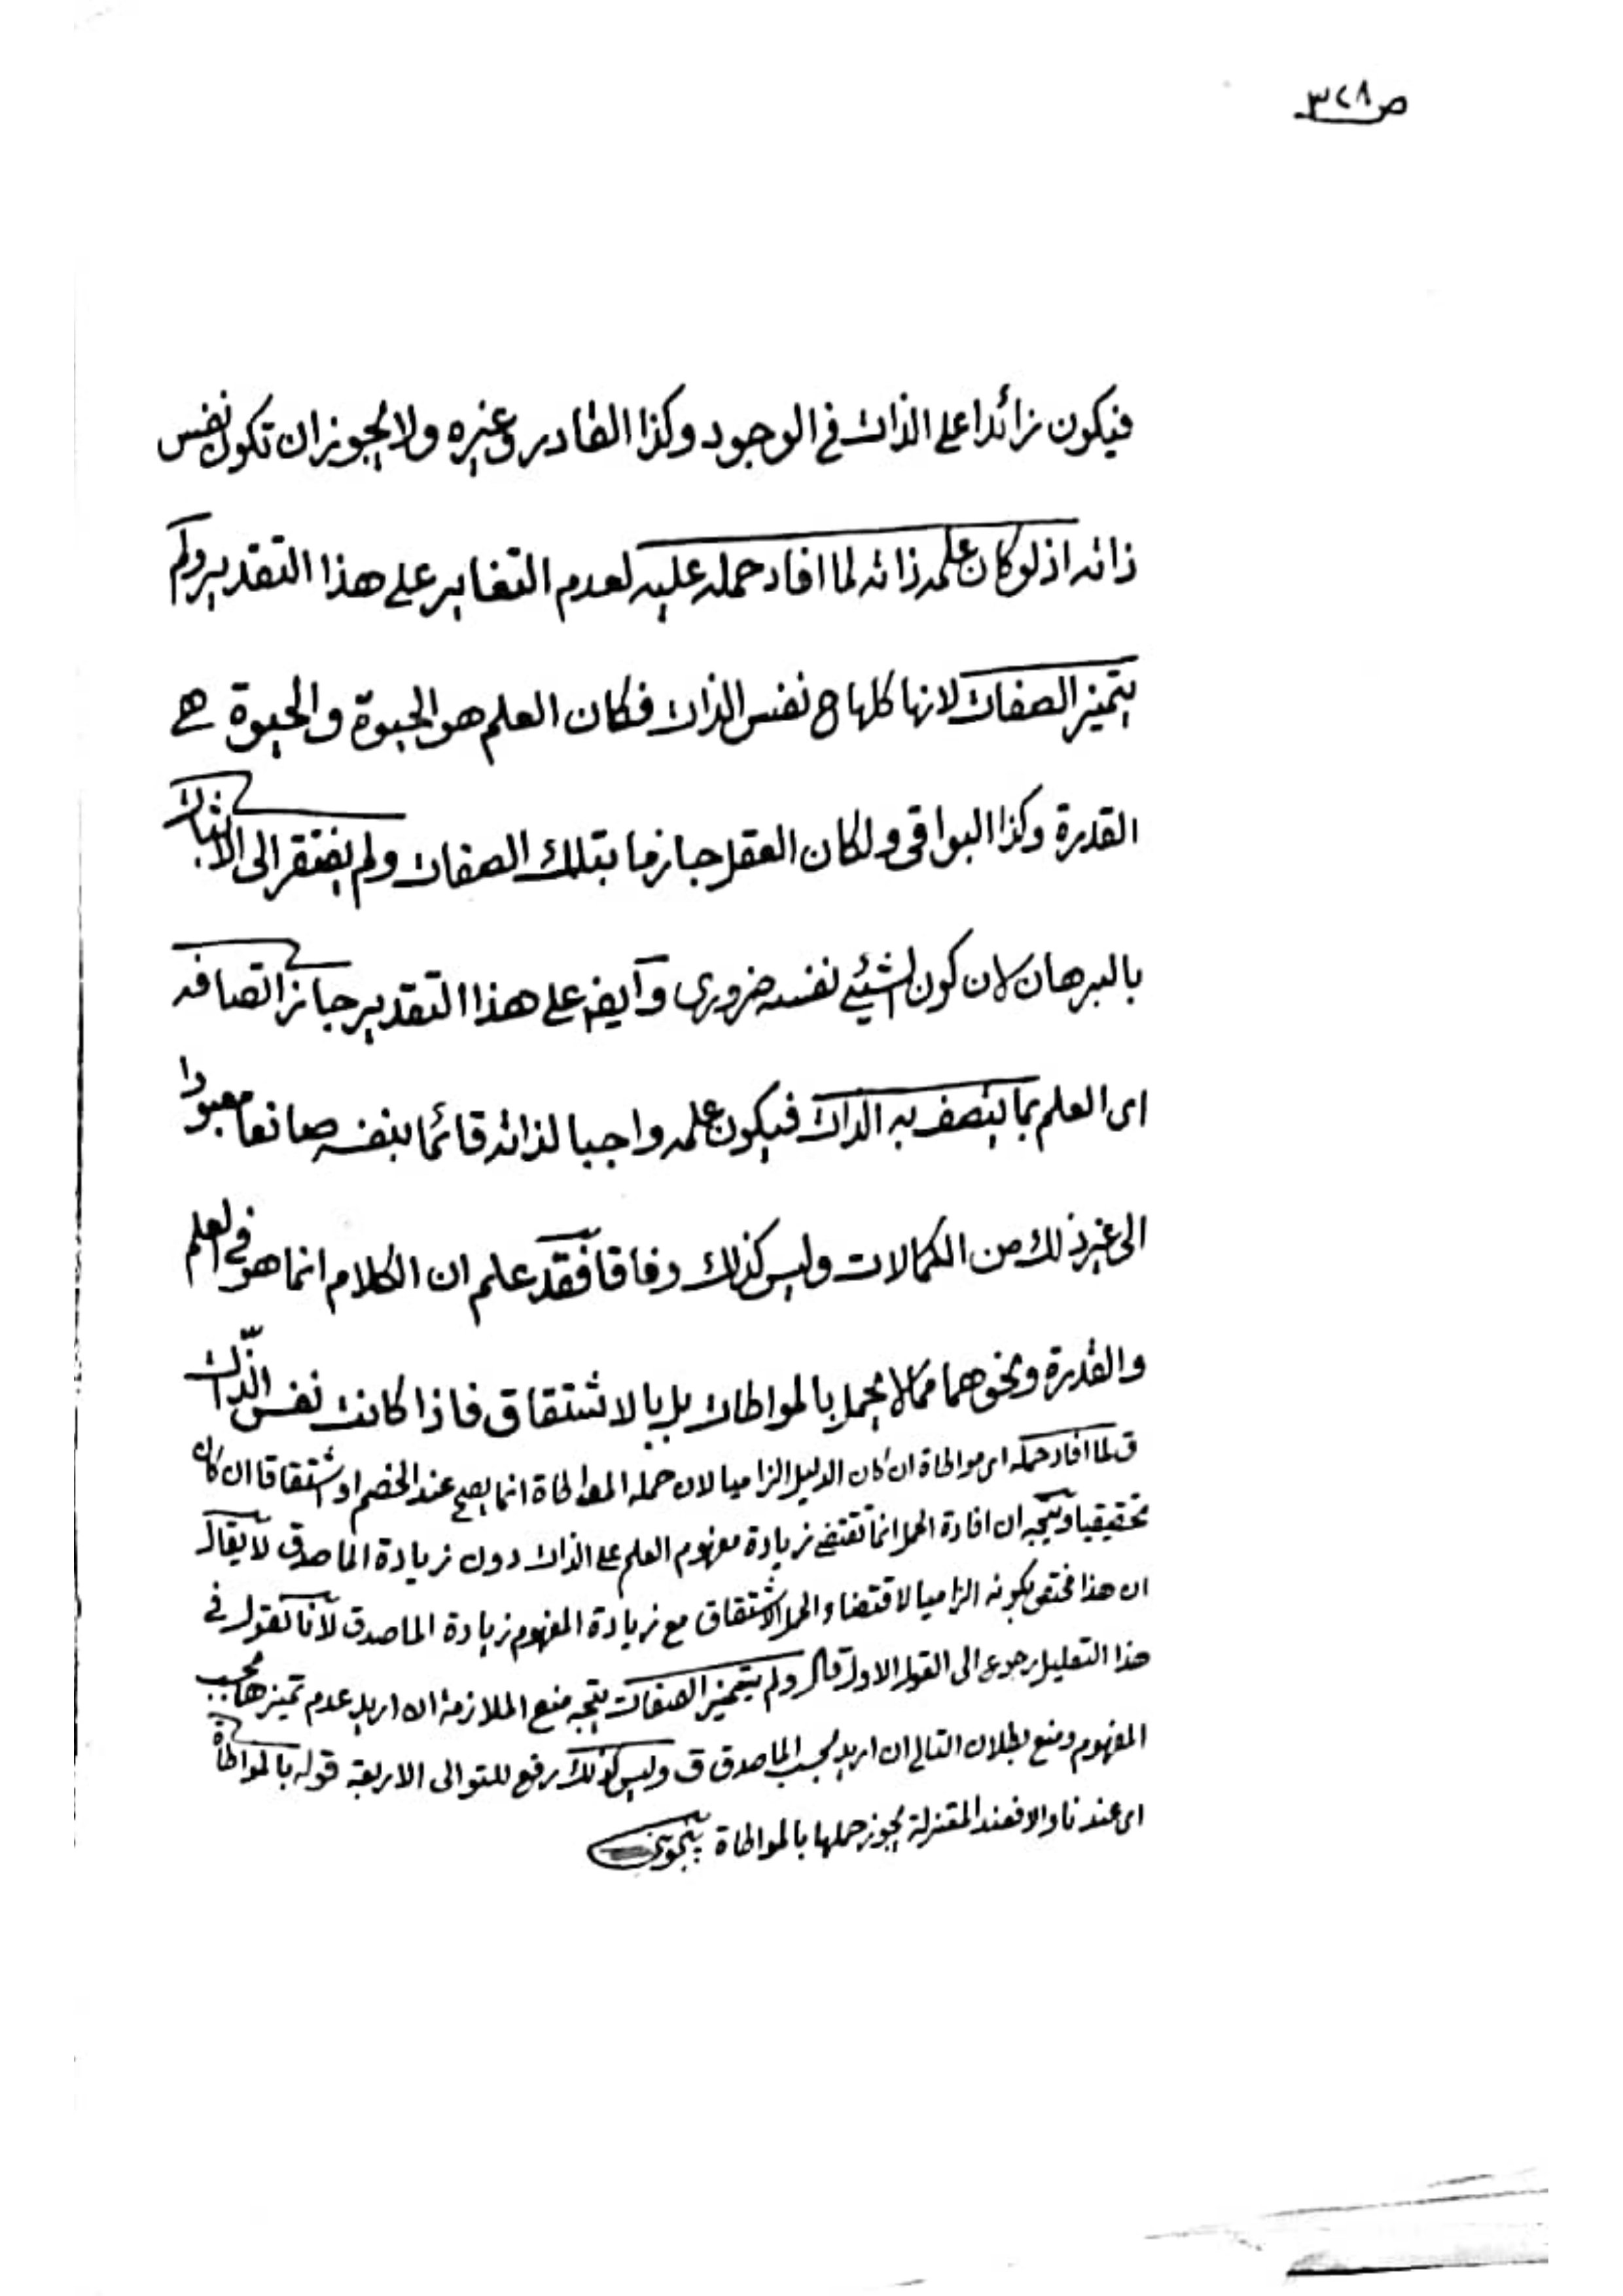 ص ٣٢٨
فيكون زائدا على الذات في الوجود وكذا القادر وغيره ولا يجوز ان تكون نفس
ذاته اذ لو كان علمه ذاته لما افاد حمله عليه لعدم التغاير على هذا التقدير ولم
يتميز الصفات لانها كلها ح نفس الذات فكان العلم هو الحيوة والحيوة هي
القدرة وكذا البواقي ولكان العقل جازما بتلك الصفات ولم يفتقر الى الاثبات
بالبرهان لان كون الشيئ نفسه ضروري وآيض على هذا التقدير جاز اتصافه
اى العلم بما يتصف به الذات فيكون علمه واجبا لذاته قائما بنفسه صانعا معبودا
الى غير ذلك من الكمالات وليس كذلك وفاقا فقد علم ان الكلام انما هو في العلم
والقدرة ونحوهما مما لا يحمل بالمواطات بل بالاشتقاق فاذا كانت نفس الذّات
ق لما افاد حمله اى مواطاة ان كان الدليل الزاميا لان حمله المواطاة انما يصح عند الخصم او اشتقاقا ان كان
تحقيقيا ويتجه ان افادة الحمل انما تقتضي زيادة مفهوم العلم على الذات دون زيادة الماصدق لا يقال
ان هذا مختص بكونه الزاميا لاقتضاء الحمل الاشتقاق مع زيادة المفهوم زيادة الماصدق لانا نقول في
هذا التعليل رجوع الى القول الاول قال ولم يتميز الصفات يتجه منع الملازمة ان اريد عدم تميزها بحسب
المفهوم ومنع بطلان التالي ان اريد بحسب الماصدق ق وليس كذلك رفع للتوالى الاربعة قوله بالمواطاة
اى عندنا والا فعند المعتزلة يجوز حملها بالمواطاة